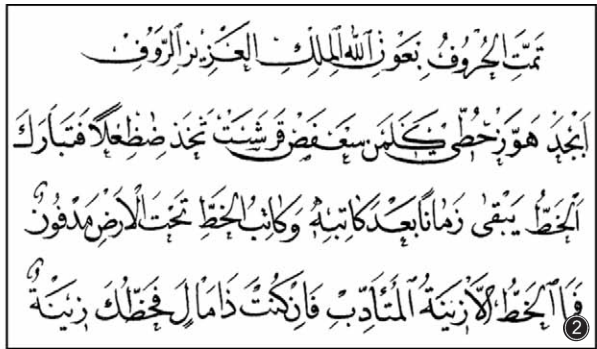 تَمَّتِ الحُرُوفُ بِعَوْنِ اللهِ المَلِكِ العَزِيزِ الرَّؤُفِ
اَبْجَدْ هَوَّزْ حُطِّى كَلَمَن سَعَفَصْ قَرَشَتْ ثَخَذْ ضَظِغْلًا فَتَبَارَكَ
اَلخَطُّ يَبْقٰى زَمَانًا بَعْدَ كَاتِبِهٖ وَكَاتِبُ الخَطِّ تَحْتَ الْاَرْضِ مَدْفُونٌ
فَمَا الخَطُّ اِلَّا زِينَةُ المُتَأَدِّبِ فَاِنْ كُنْتَ ذَا مَالٍ فَخَطُّكَ زِينَةٌ
2